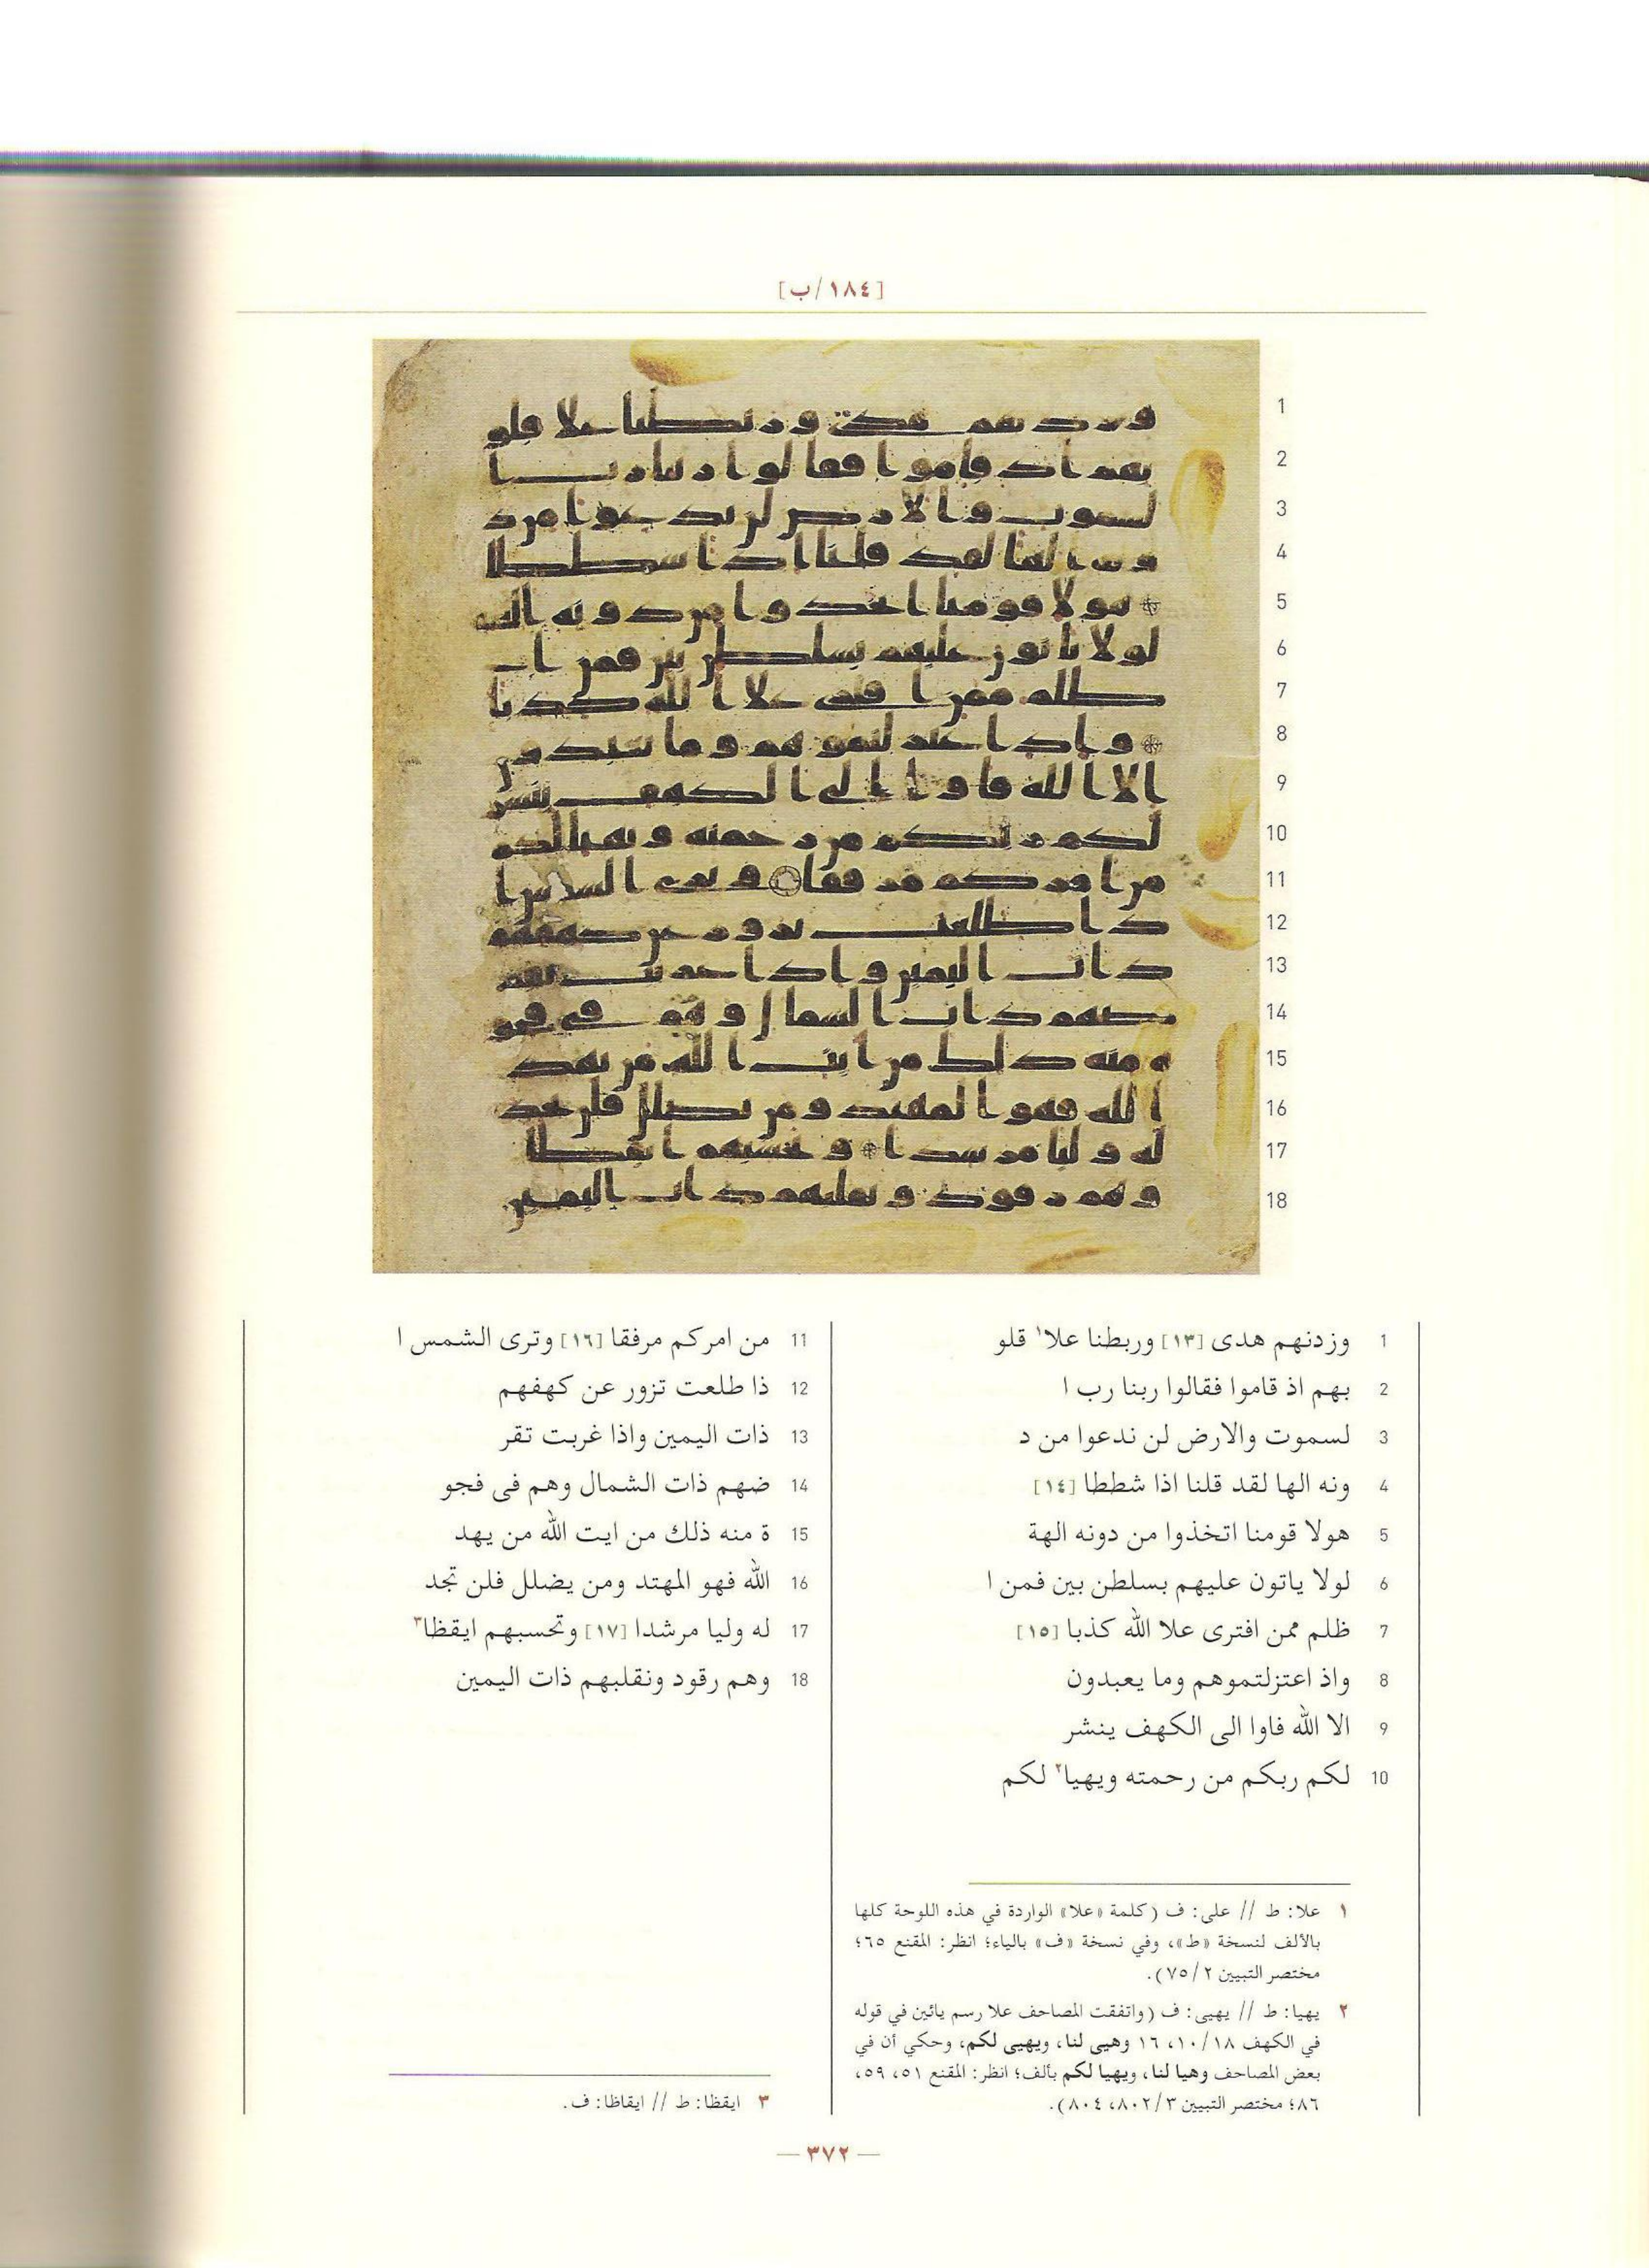 [١٨٤/ب]
1 وزدنهم هدى [١٣] وربطنا علا١ قلو
2 بهم اذ قاموا فقالوا ربنا رب ا
3 لسموت والارض لن ندعوا من د
4 ونه الها لقد قلنا اذا شططا [١٤]
5 هولا قومنا اتخذوا من دونه الهة
6 لولا ياتون عليهم بسلطن بين فمن ا
7 ظلم ممن افترى علا الله كذبا [١٥]
8 واذ اعتزلتموهم وما يعبدون
9 الا الله فاوا الى الكهف ينشر
10 لكم ربكم من رحمته ويهيا٢ لكم
11 من امركم مرفقا [١٦] وترى الشمس ا
12 ذا طلعت تزور عن كهفهم
13 ذات اليمين واذا غربت تقر
14 ضهم ذات الشمال وهم فى فجو
15 ة منه ذلك من ايت الله من يهد
16 الله فهو المهتد ومن يضلل فلن تجد
17 له وليا مرشدا [١٧] وتحسبهم ايقظا٣
18 وهم رقود ونقلبهم ذات اليمين
١ علا: ط // على: ف (كلمة «علا» الواردة في هذه اللوحة كلها
بالألف لنسخة «ط»، وفي نسخة «ف» بالياء؛ انظر: المقنع ٦٥؛
مختصر التبيين ٧٥/٢).
٢ يهيا: ط // يهيى: ف (واتفقت المصاحف علا رسم يائين في قوله
في الكهف ١٠/١٨، ١٦ وهيى لنا، ويهيى لكم، وحكي أن في
بعض المصاحف وهيا لنا، ويهيا لكم بألف؛ انظر: المقنع ٥١، ٥٩،
٨٦؛ مختصر التبيين ٨٠٢/٣، ٨٠٤).
٣ ايقظا: ط // ايقاظا: ف.
— ٣٧٢ —